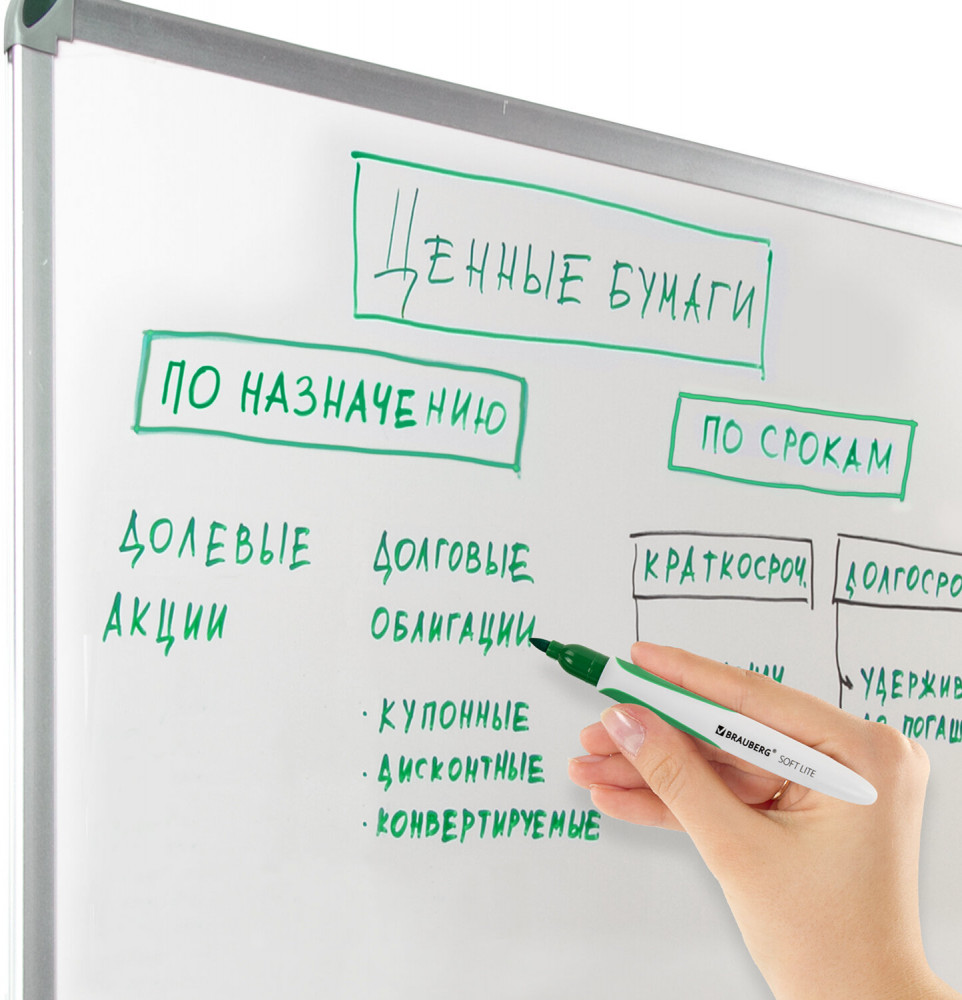 ЦЕННЫЕ БУМАГИ
ПО НАЗНАЧЕНИЮ
ПО СРОКАМ
ДОЛЕВЫЕ
АКЦИИ
ДОЛГОВЫЕ
ОБЛИГАЦИИ
· КУПОННЫЕ
· ДИСКОНТНЫЕ
· КОНВЕРТИРУЕМЫЕ
КРАТКОСРОЧ.
ДОЛГОСРО
УДЕРЖИВ
ДО ПОГАШ
BRAUBERG® SOFT LITE